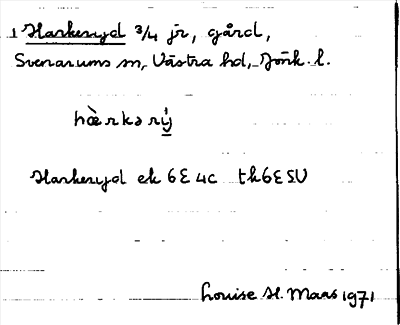 1 Harkeryd 3/4 jr, gård,
Svenarums sn, Västra hd, Jönk. l.
hæ̀rkərý
Harkeryd ek 6E4c tk6E5U
Louise H. Maas 1971